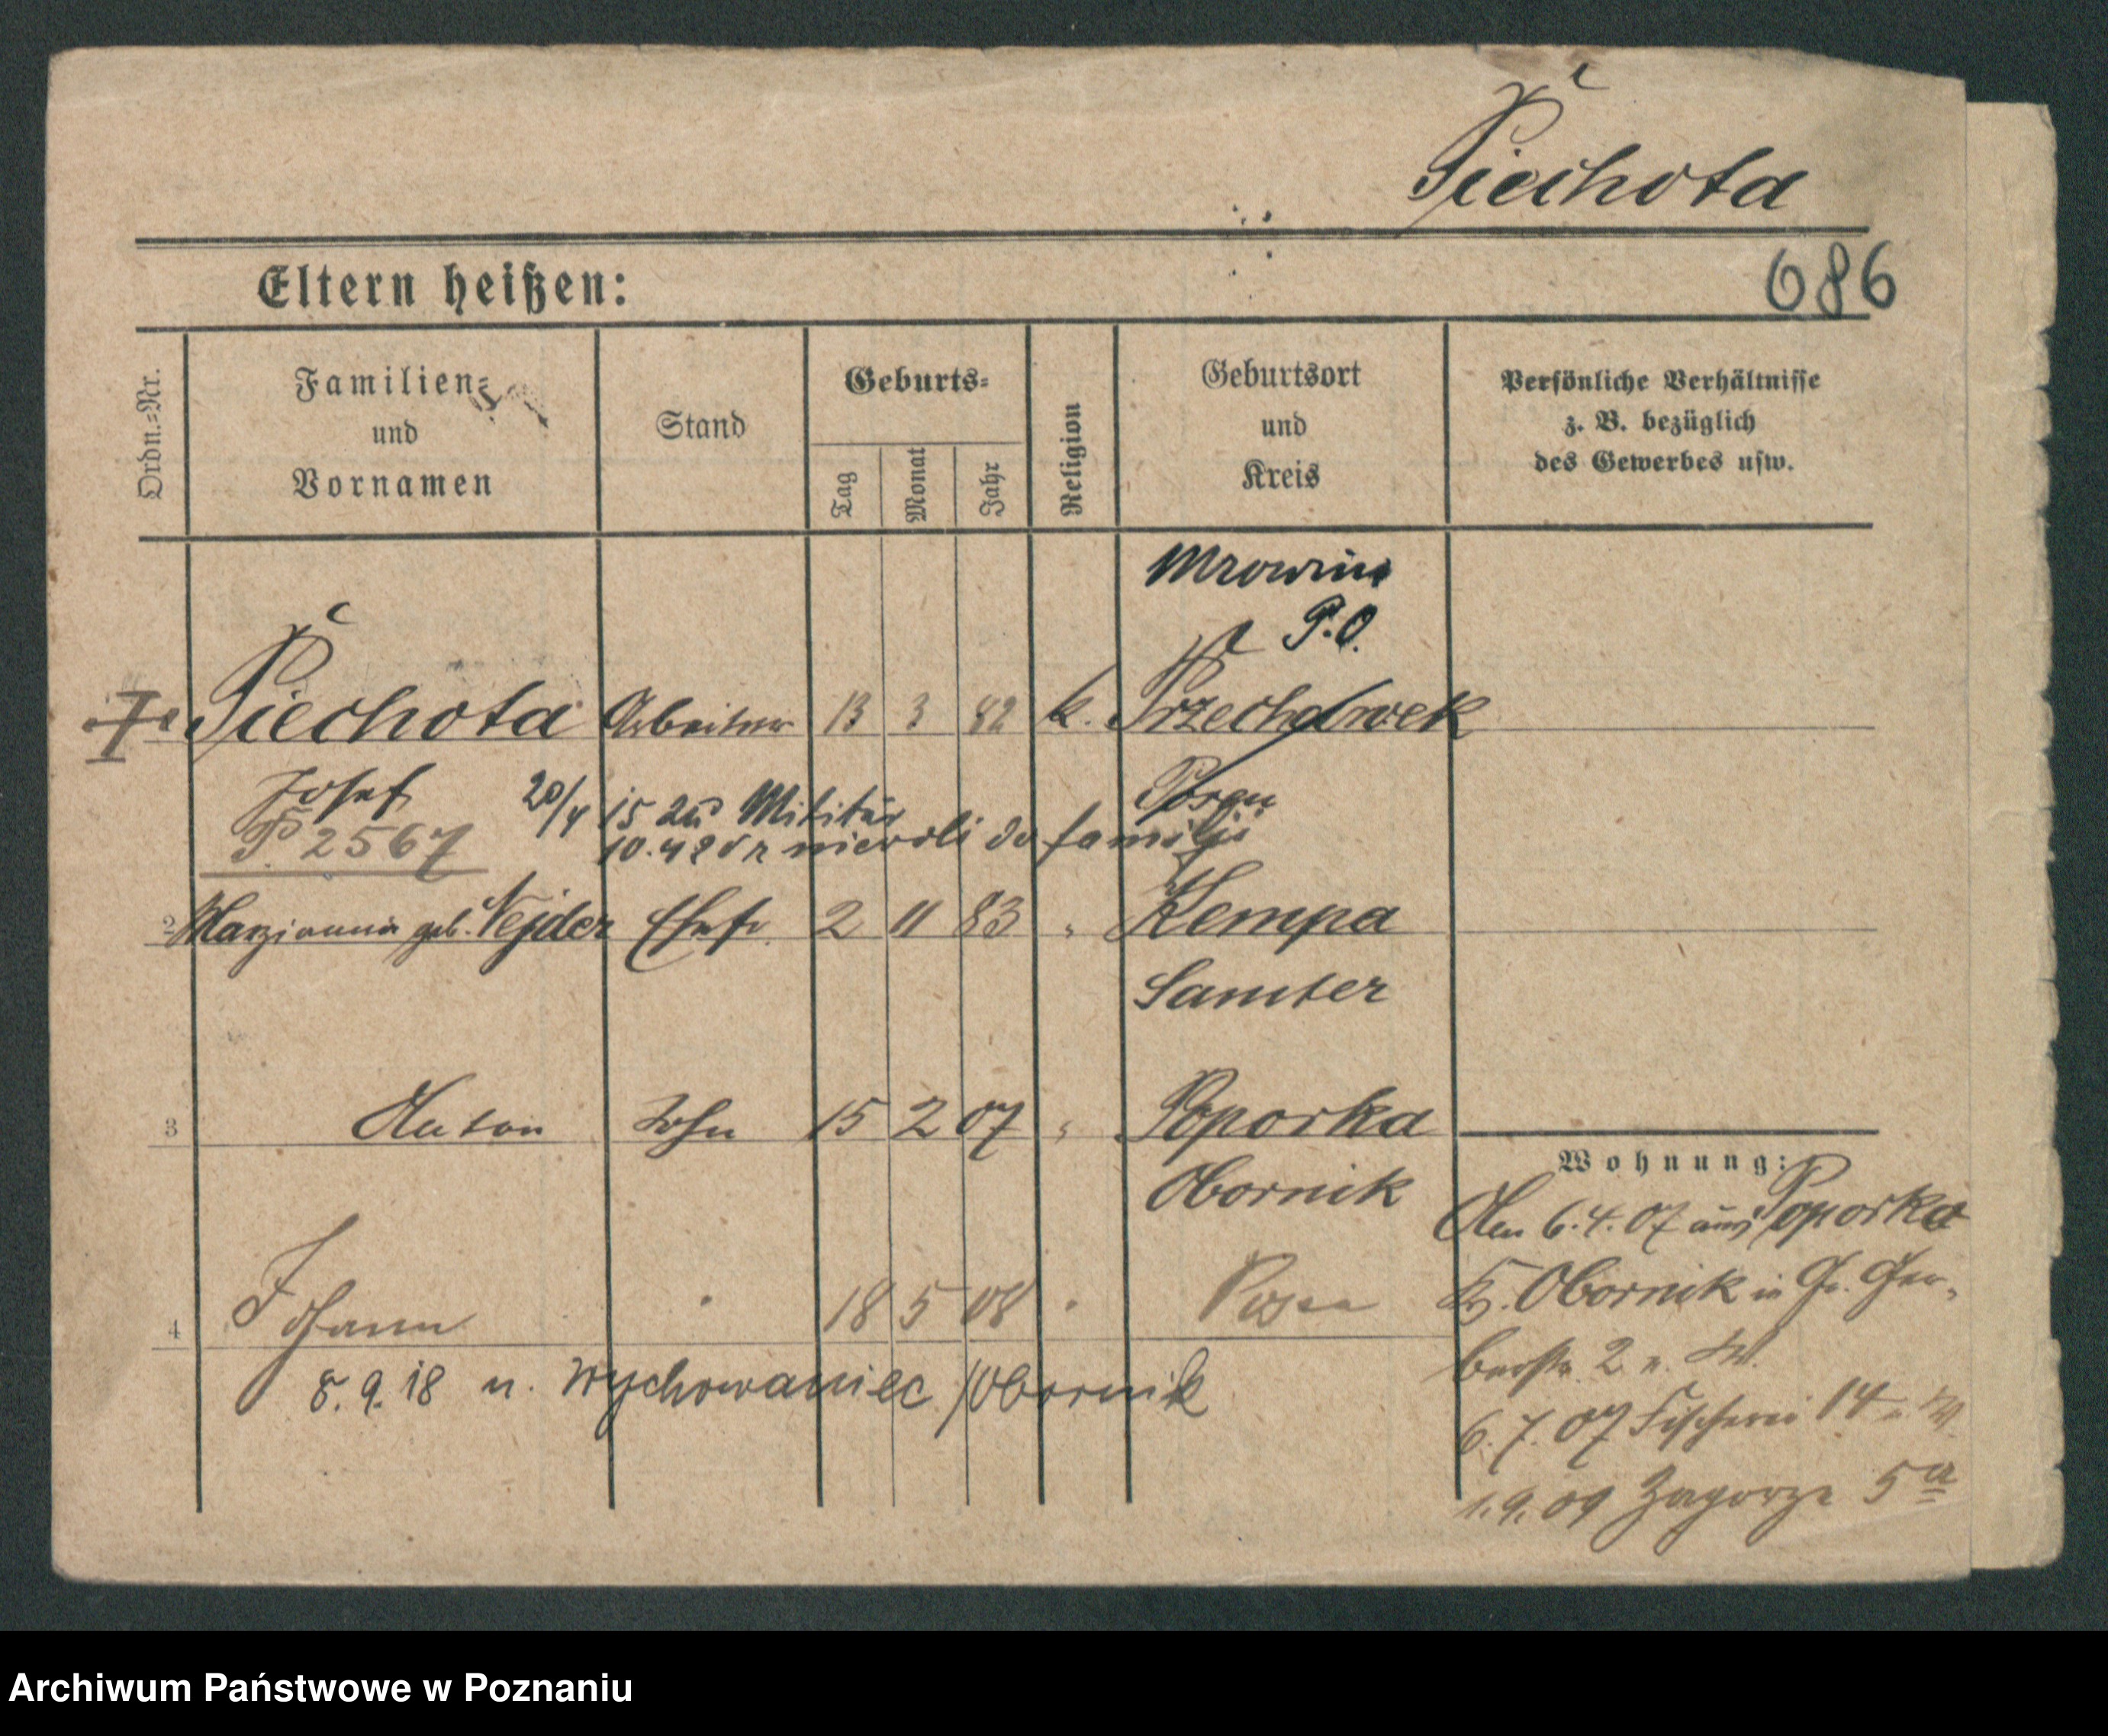 Piechota
Eltern heißen:
686
Ordn.=Nr.
Familien=
und
Vornamen
Stand
Geburts=
Tag
Monat
Jahr
Religion
Geburtsort
und
Kreis
Persönliche Verhältnisse
z. B. bezüglich
des Gewerbes usw.
Mrowino
P.O.
Piechota Arbeiter 13 3 82 k. Przechdrwek
Josef 20/4 15 zu Militär Posen
P. 2567 10.4 nierdli do familji
2 Marzianna geb. Nejder Ehefr. 2 11 83 " Kempa
Samter
3 Anton Sohn 15 2 07 " Poporka
Obornik
Wohnung:
Am 6.4.07 aus Poporka
Kr. Obornik in Gr. Ger-
berstr. 2
4 Johann " 18 5 08 " Posen
8.9.18 n. Wychowaniec / Obornik
6.7.07 Fischerei 14
1.9.09 Zagorze 5a
Archiwum Państwowe w Poznaniu